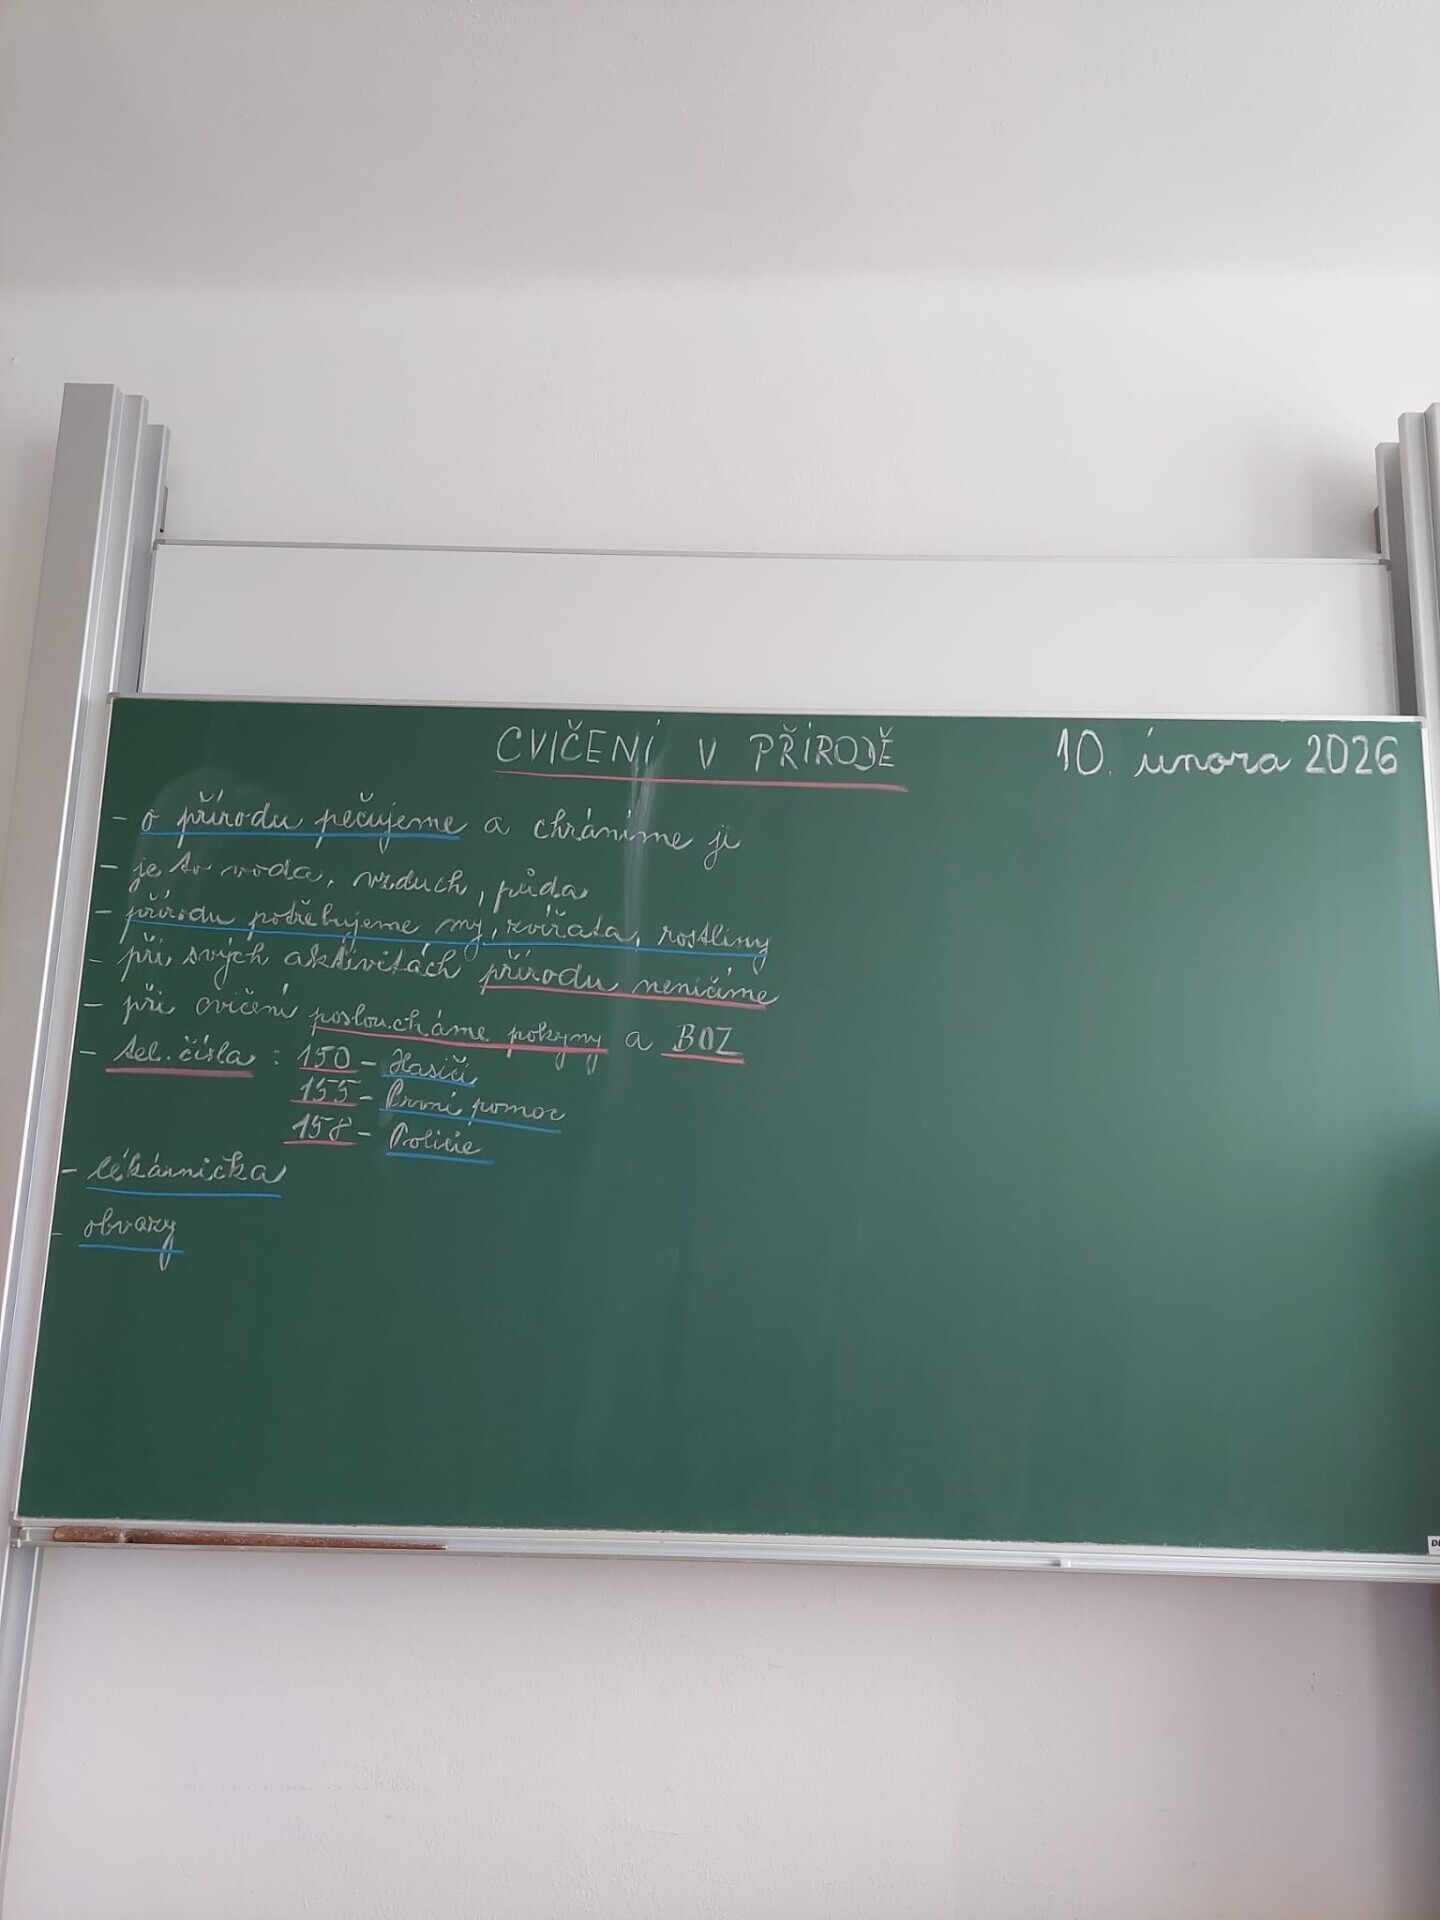 CVIČENÍ V PŘÍRODĚ 10. února 2026
- o přírodu pečujeme a chráníme ji
- je to voda, vzduch, půda
- přírodu potřebujeme my, zvířata, rostliny
- při svých aktivitách přírodu neničíme
- při cvičení posloucháme pokyny a BOZ
- tel. čísla : 150 - Hasiči
155 - První pomoc
158 - Policie
- lékárnička
- obvazy